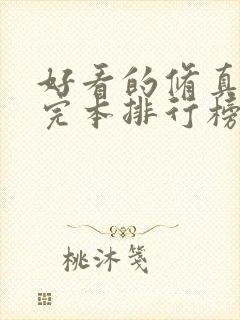 好看的修真
完本排行榜
桃沐笺